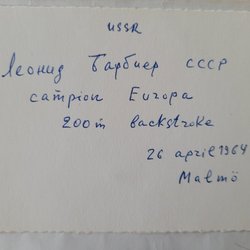 USSR
Леонид Барбиер СССР
campion Europa
200m backstroke
26 april 1964
Malmö